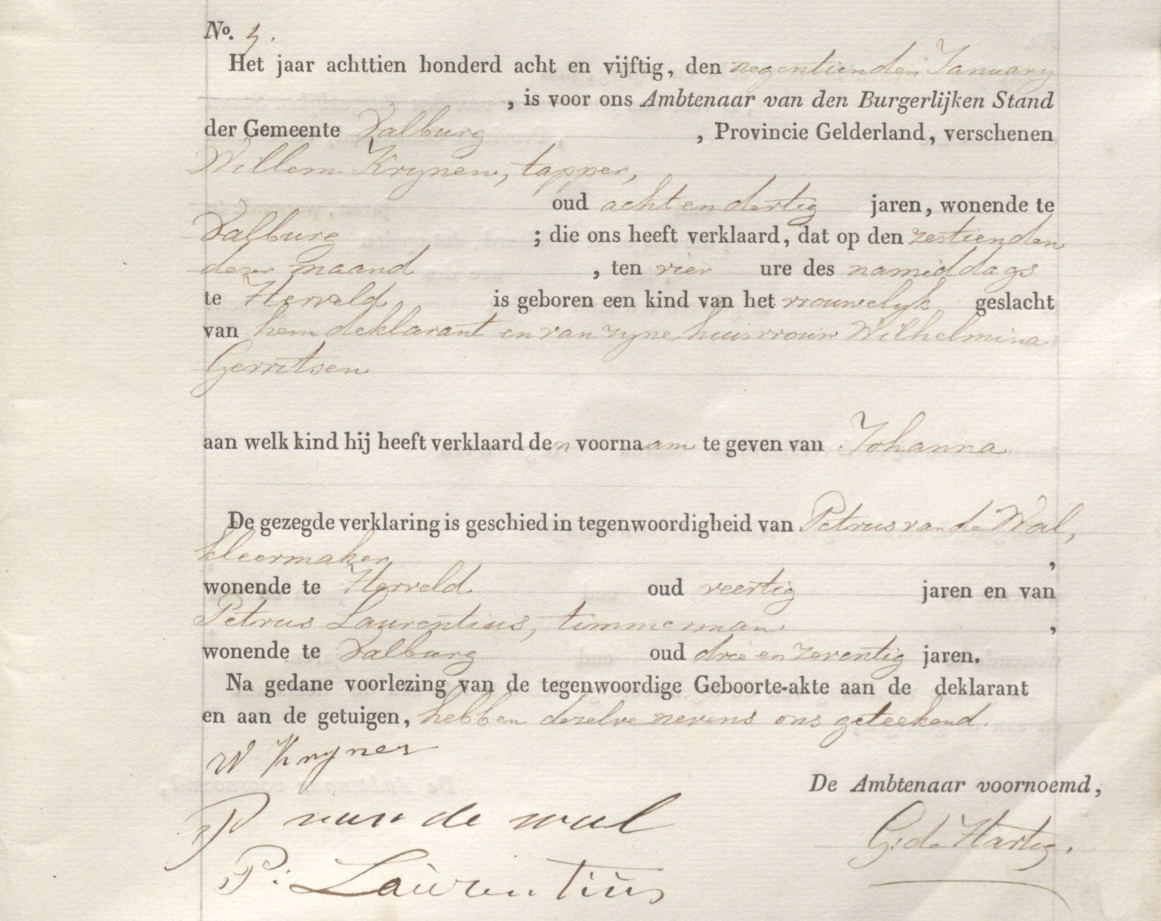 No. 5.
Het jaar achttien honderd acht en vijftig, den negentienden January
, is voor ons Ambtenaar van den Burgerlijken Stand
der Gemeente Valburg , Provincie Gelderland, verschenen
Willem Krynen, tapper,
oud acht en dertig jaren, wonende te
Valburg ; die ons heeft verklaard, dat op den zestienden
dezer maand , ten vier ure des namiddags
te Herveld, is geboren een kind van het vrouwelyk geslacht
van hem deklarant en van zyne huisvrouw Wilhelmina
Gerritsen
aan welk kind hij heeft verklaard den voornaam te geven van Johanna
De gezegde verklaring is geschied in tegenwoordigheid van Petrus van de Wal,
kleermaker ,
wonende te Herveld oud veertig jaren en van
Petrus Laurentius, timmerman ,
wonende te Valburg oud drie en zeventig jaren.
Na gedane voorlezing van de tegenwoordige Geboorte-akte aan de deklarant
en aan de getuigen, hebben dezelve nevens ons geteekend.
W Krynen
De Ambtenaar voornoemd,
P van de wal
G. de Hartog.
P: Laurentius